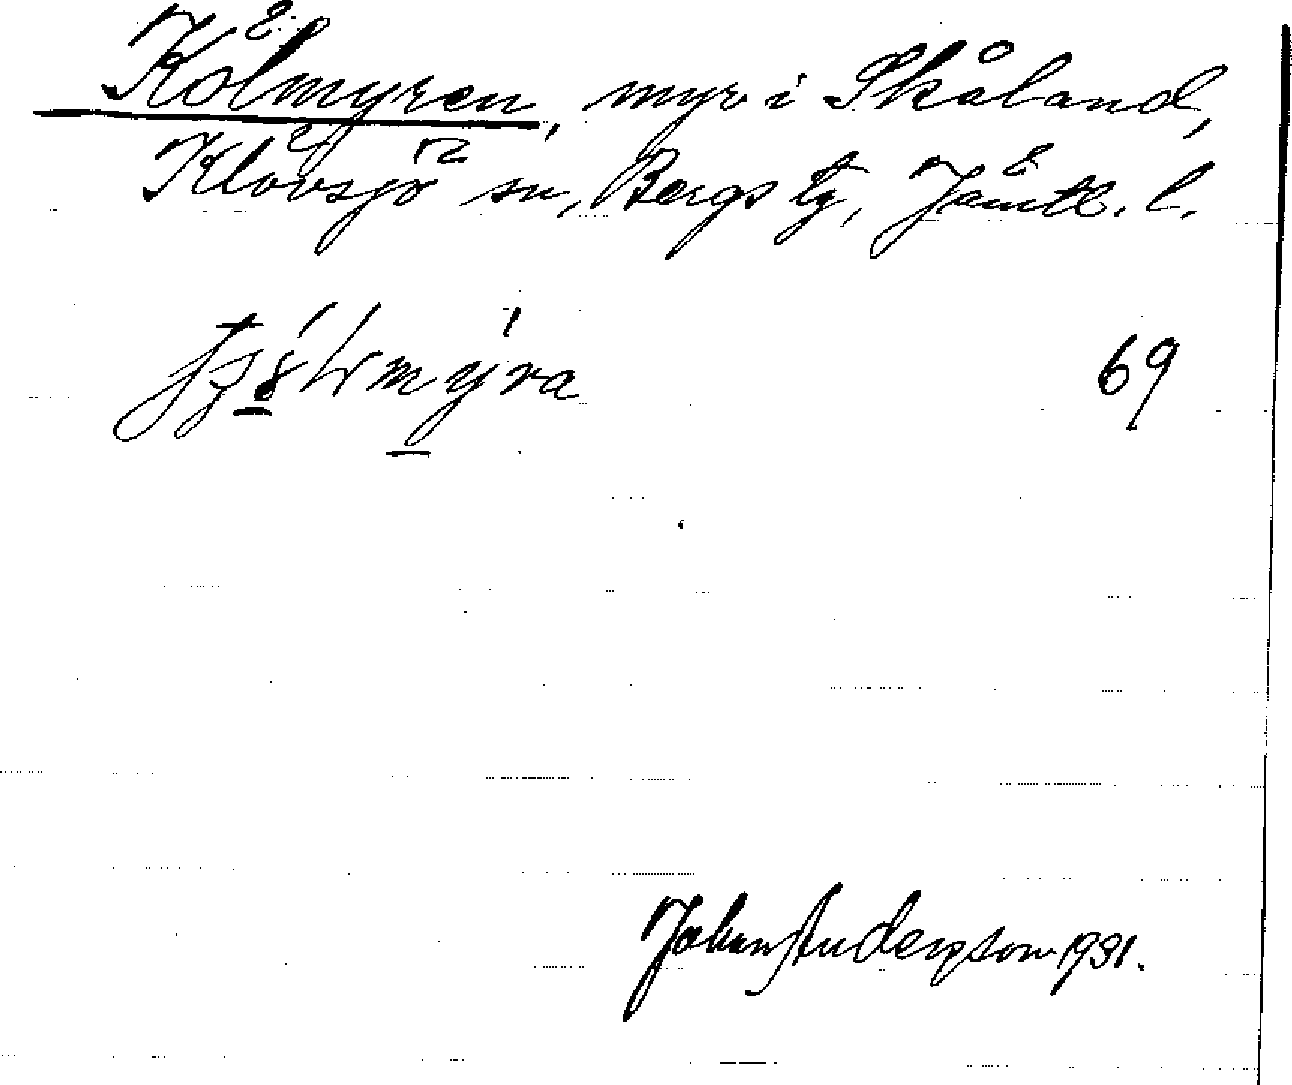 Kölmyren, myr i Skåland,
Klövsjö sn, Bergs tg, Jämtl. l.
69
Johan Anderson 1931.